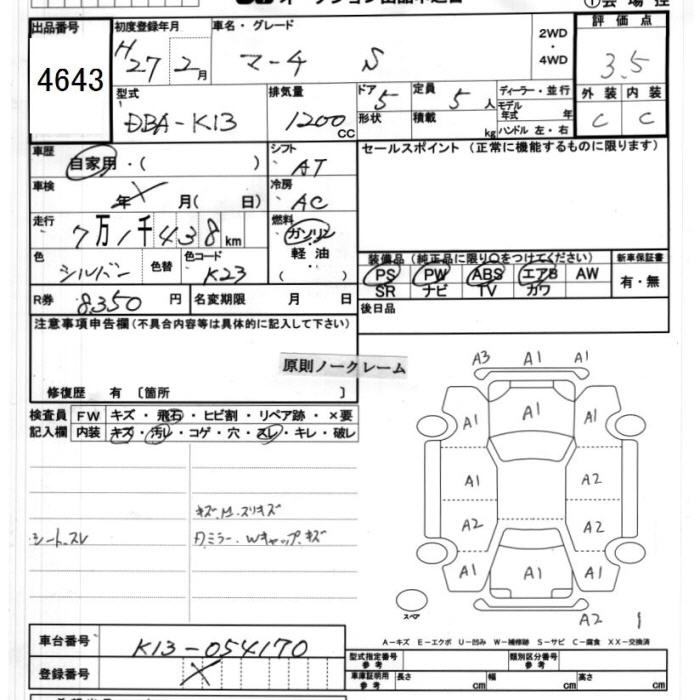 出品番号 初度登録年月 車名・グレード 2WD・4WD 評価点
4643 H27 2月 マーチ S 3.5
型式 排気量 ドア 5 定員 5人 ディーラー・並行 外装 内装
DBA-K13 1200cc 形状 積載 kg モデル年式 年 ハンドル 左・右 C C
車歴 自家用・( ) シフト AT セールスポイント (正常に機能するものに限ります)
車検 年 月( 日) 冷房 AC
走行 7万1千438km 燃料 ガソリン
色 シルバー 色替 色コード K23 軽油 ( )
装備品 (純正品に限り○をつけてください) 新車保証書
PS PW ABS エアB AW 有・無
SR ナビ TV カワ
R券 8350円 名変期限 月 日 後日品
注意事項申告欄(不具合内容等は具体的に記入して下さい)
原則ノークレーム
修復歴 有 〔箇所 〕
検査員 FW キズ・飛石・ヒビ割・リペア跡・×要
記入欄 内装 キズ・汚レ・コゲ・穴・スレ・キレ・破レ
A3 A1 A1
A1 A1 A1
キズ.M.スリキズ
シート.スレ
Dミラー.Wキャップ.キズ
A1 A2
A2 A2
A1 A1 A1
スペア
A2
A-キズ E-エクボ U-凹み W-補修跡 S-サビ C-腐食 XX-交換済
車台番号 K13-054170
登録番号
型式指定番号 参考 類別区分番号 参考
車庫証明用 参考 長さ cm 幅 cm 高さ cm